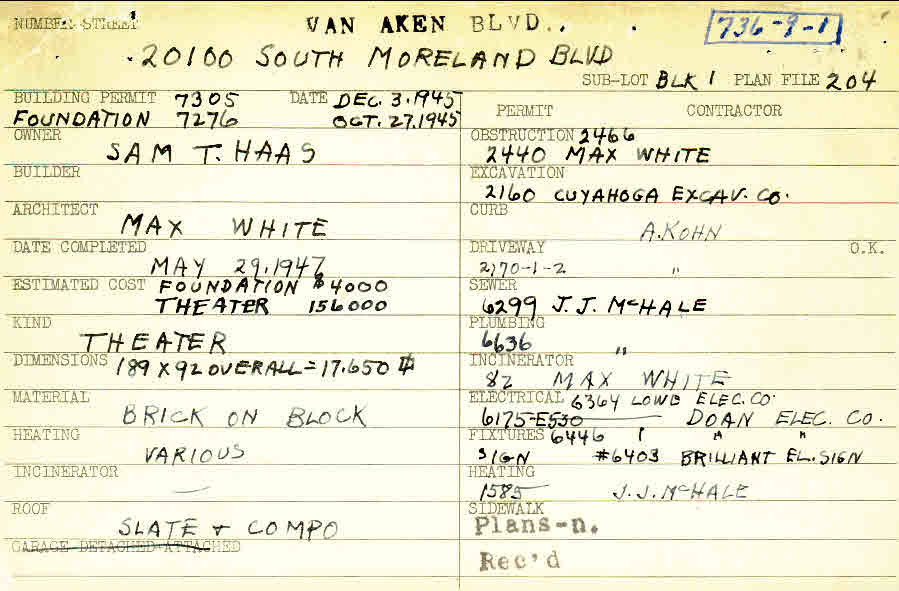 NUMBER STREET VAN AKEN BLVD. 736-9-1
20100 SOUTH MORELAND BLVD
SUB-LOT BLK 1 PLAN FILE 204
BUILDING PERMIT 7305 DATE DEC. 3.1945
FOUNDATION 7276 OCT. 27.1945
OWNER
SAM T. HAAS
BUILDER
ARCHITECT
MAX WHITE
DATE COMPLETED
MAY 29.1947
ESTIMATED COST FOUNDATION $4000
THEATER 156000
KIND
THEATER
DIMENSIONS 189 X 92 OVERALL = 17.650
MATERIAL
BRICK ON BLOCK
HEATING
VARIOUS
INCINERATOR
—
ROOF
SLATE + COMPO
GARAGE DETACHED-ATTACHED
PERMIT CONTRACTOR
OBSTRUCTION 2466
2440 MAX WHITE
EXCAVATION
2160 CUYAHOGA EXCAV. CO.
CURB
A.KOHN
DRIVEWAY O.K.
2170-1-2 "
SEWER
6299 J.J. McHALE
PLUMBING
6636 "
INCINERATOR
82 MAX WHITE
ELECTRICAL 6364 LOWE ELEC. CO.
6175-E530 DOAN ELEC. CO.
FIXTURES 6446 " "
SIGN #6403 BRILLIANT EL. SIGN
HEATING
1585 J.J. McHALE
SIDEWALK
Plans-n.
Rec'd